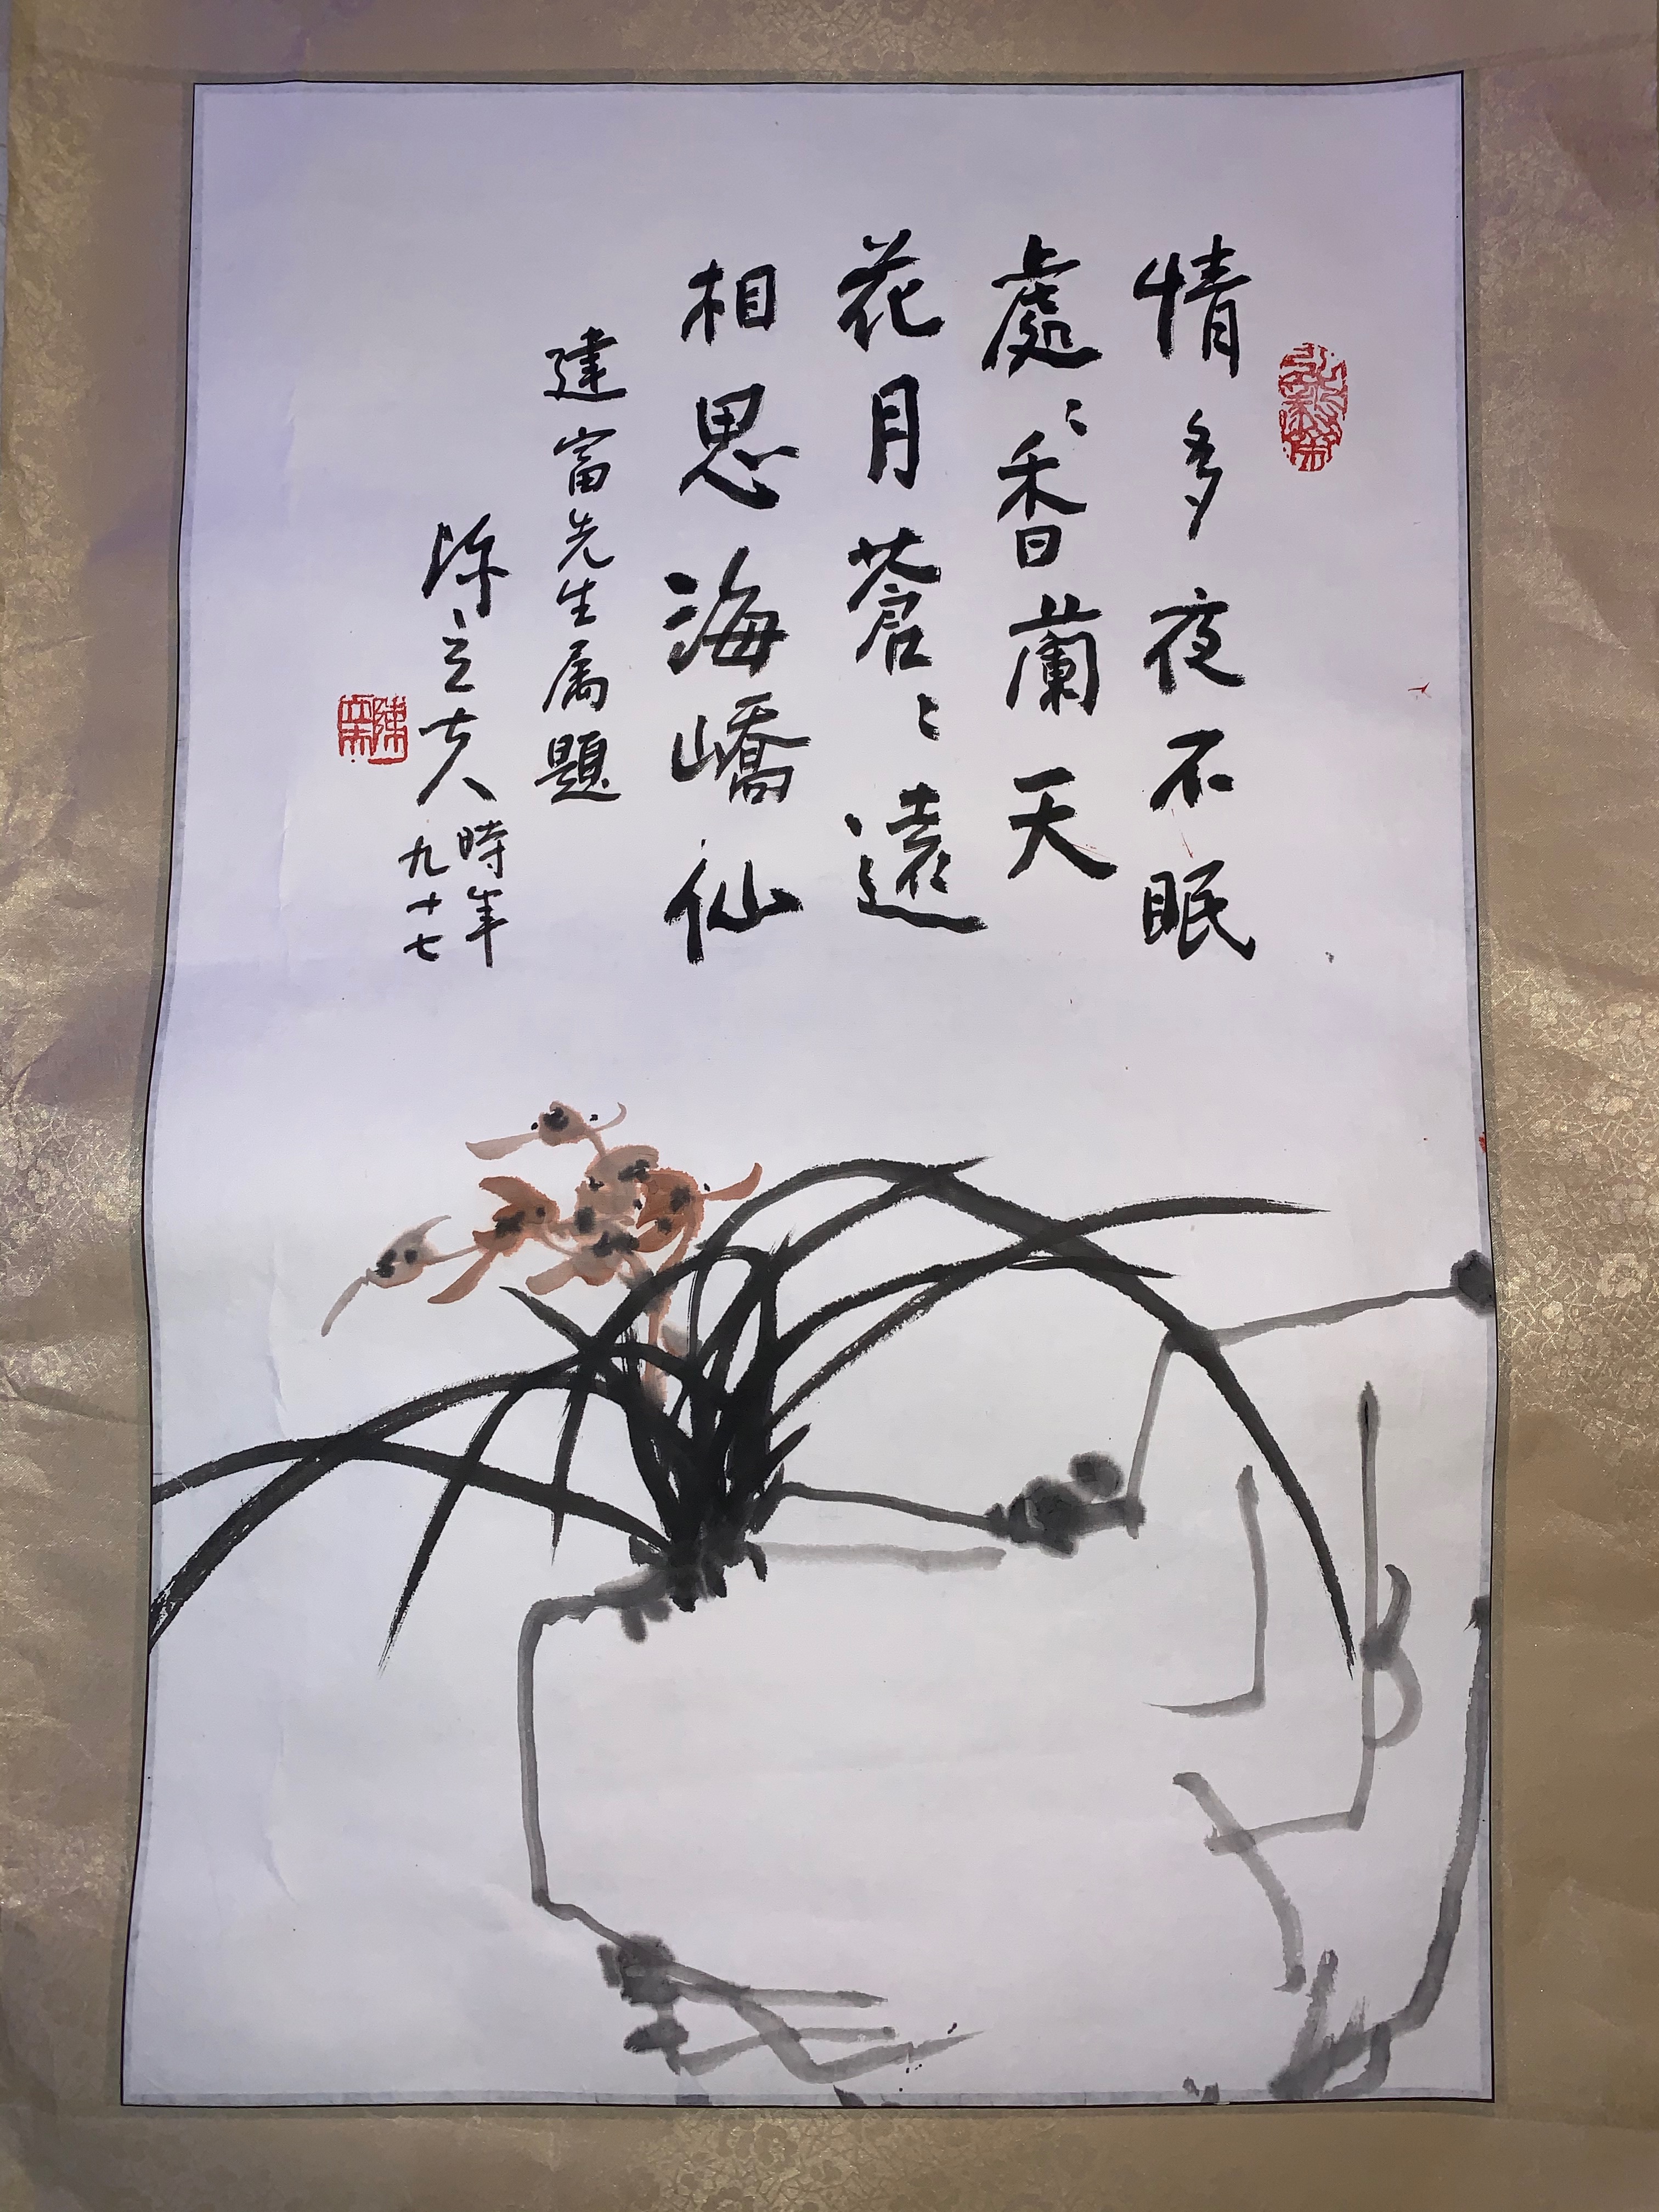 情多夜不眠
處〻香蘭天
花月蒼〻遠
相思海嶠仙
建富先生属題
陳立夫時年
九十七
陳立夫